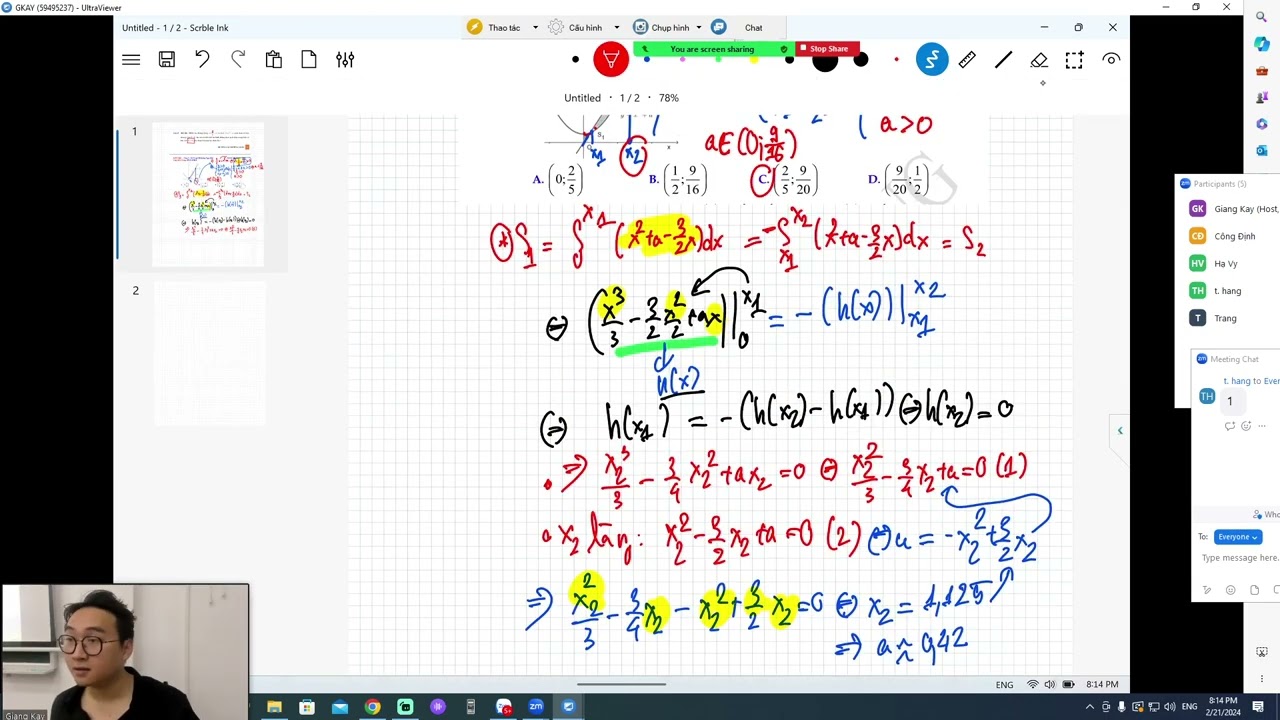 GKAY (59495237) - UltraViewer
Untitled - 1 / 2 - Scrble Ink
Thao tác
Cấu hình
Chụp hình
Chat
You are screen sharing
Stop Share
Untitled · 1 / 2 · 78%
S₁
x
x1
x2
a∈(0;9/16)
a>0
A. (0; 2/5)
B. (1/2; 9/16)
C. (2/5; 9/20)
D. (9/20; 1/2)
(*) S₁ = ∫₀^x1 (x²+a-3/2x)dx = -∫_x1^x2 (x²+a-3/2x)dx = S₂
⇔ (x³/3 - 3/2 x²/2 + ax)|₀^x1 = -(h(x))|_x1^x2
h(x)
⇔ h(x1) = -(h(x2) - h(x1)) ⇔ h(x2) = 0
⇒ x2³/3 - 3/4 x2² + ax2 = 0 ⇔ x2²/3 - 3/4 x2 + a = 0 (1)
x2 là n: x2² - 3/2 x2 + a = 0 (2) ⇔ a = -x2² + 3/2 x2
⇒ x2²/3 - 3/4 x2 - x2² + 3/2 x2 = 0 ⇔ x2 = 1,125
⇒ a ≈ 0,42
1
2
Participants (5)
GK Giang Kay (Host,
CĐ Công Định
HV Hạ Vy
T t. hang
T Trang
Meeting Chat
t. hang to Ever
TH 1
Who
To: Everyone
Type message here.
Giang Kay
ENG 8:14 PM
ENG
8:14 PM
2/21/2024